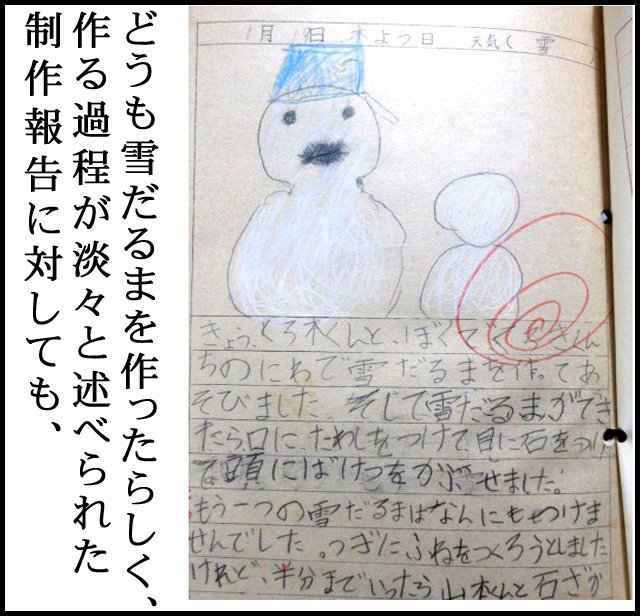 どうも雪だるまを作ったらしく、
作る過程が淡々と述べられた
制作報告に対しても、
1月19日 木よう日 天気( 雪 )
きょう、くろ木くんと、ぼくで
ちのにわで雪だるまを作ってあ
そびました。そして雪だるまができ
たら口に、たわしをつけて、目に石をつけ
て頭にばけつをかぶせました。
もう一つの雪だるまはなんにもつけま
せんでした。つぎにふねをつくろうとしました
けれど、半分までいったら山本くんと石ざか